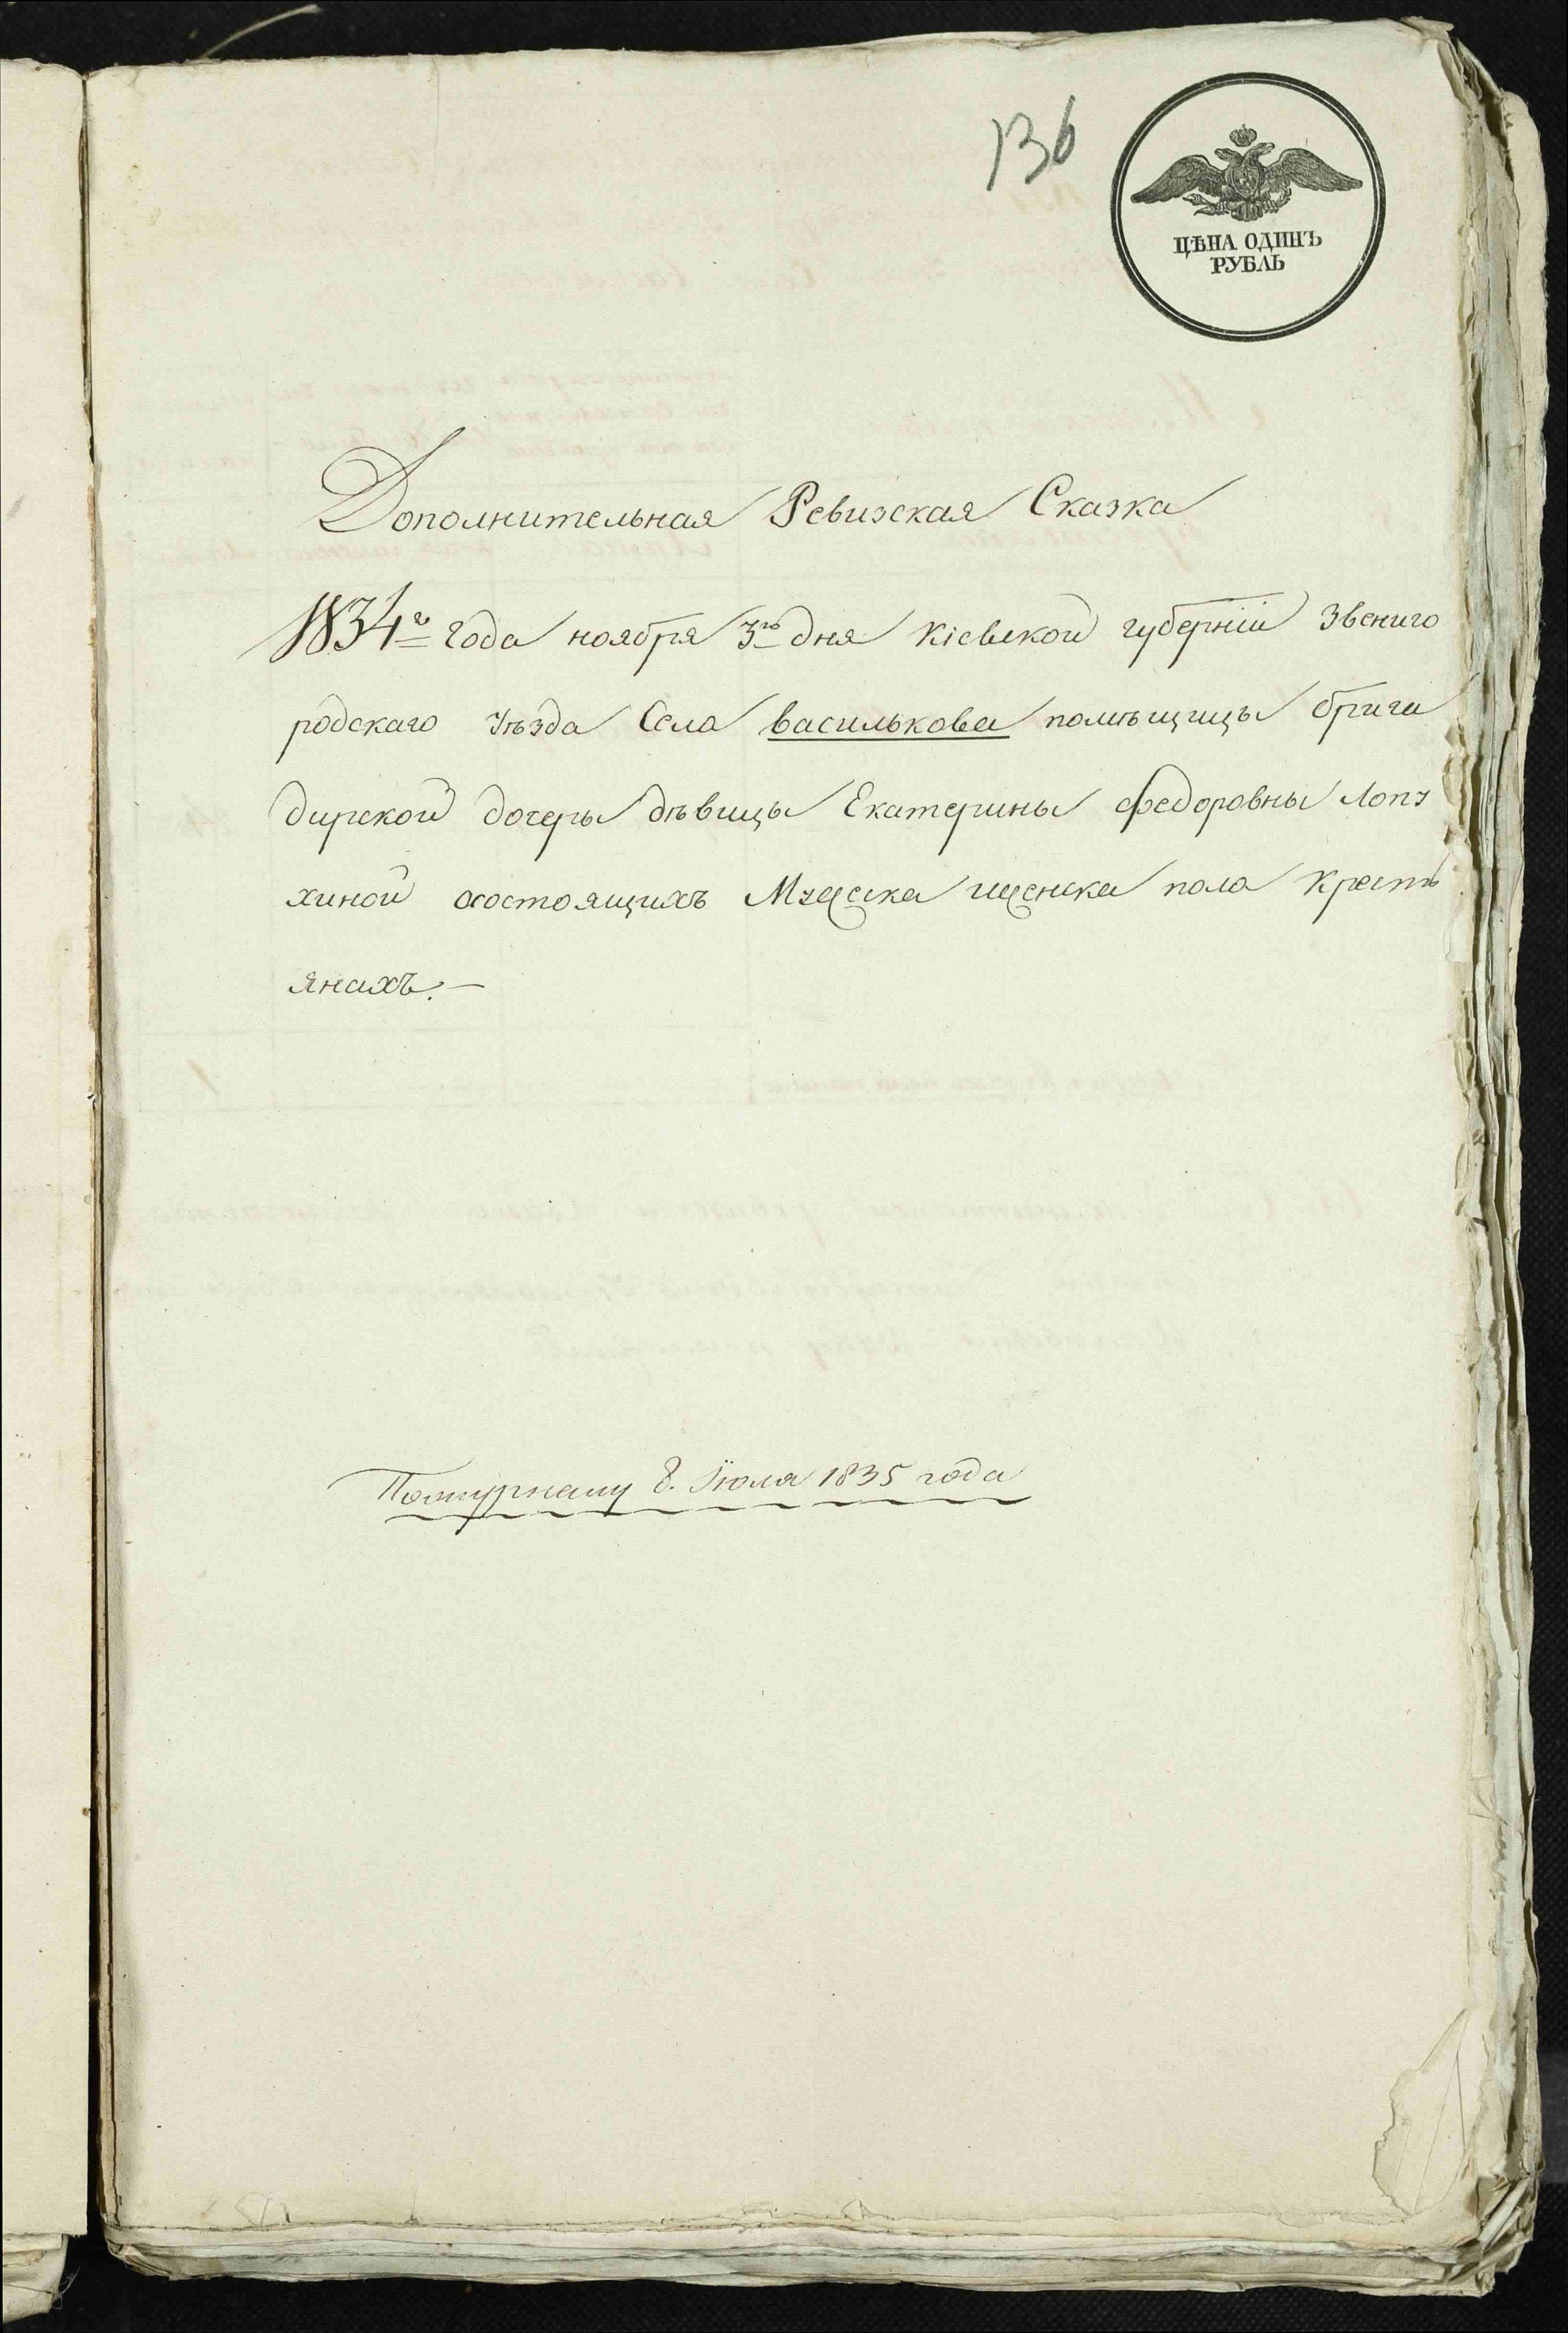 136
ЦѢНА ОДИНЪ
РУБЛЬ
Дополнительная Ревизская Сказка
1834го года ноября 3го дня Кіевской губерніи Звениго
родскаго уѣзда Села Василькова помѣщицы брига
дирской дочеры дѣвицы Екатерины Федоровны Лопу
хиной осостоящихъ Мужеска иженска пола Кресть
янахъ. —
Пожурналу 8. Іюля 1835 года